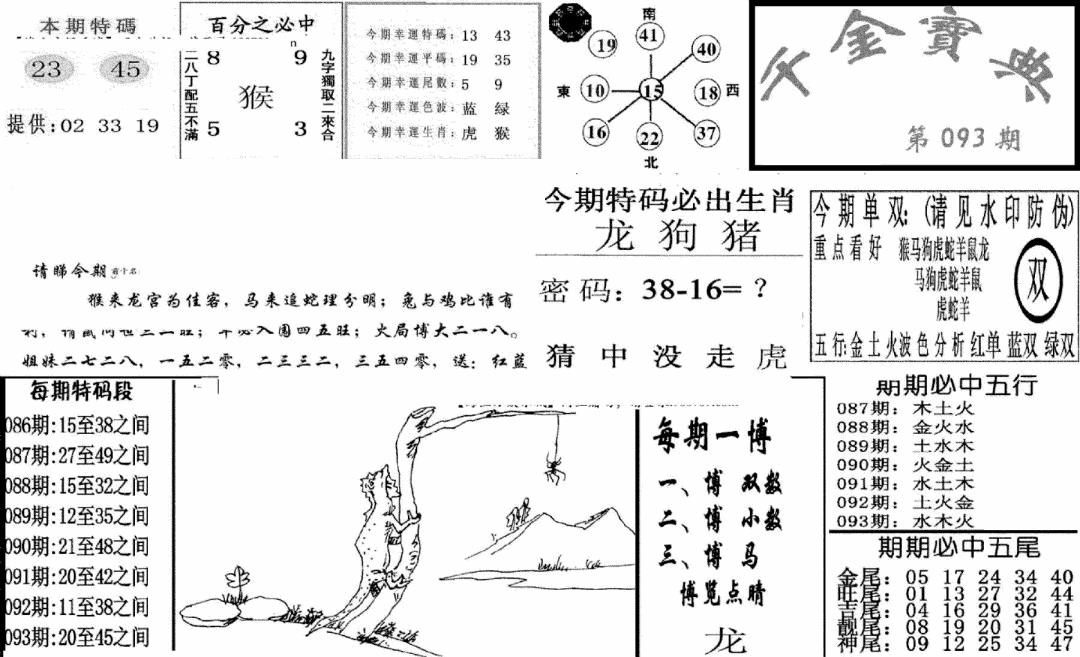 本期特碼
23 45
提供:02 33 19
百分之必中
二八丁配五不滿
8 9
猴
5 3
九字獨取二來合
今期幸運特碼: 13 43
今期幸運平碼: 19 35
今期幸運尾數: 5 9
今期幸運色波: 蓝 绿
今期幸運生肖: 虎 猴
南
41
19 40
東 10 15 18 西
16 22 37
北
金寶典
第093期
今期特码必出生肖
龙 狗 猪
密码: 38-16=?
猜中没走虎
今期单双:(请见水印防伪)
重点看好 猴马狗虎蛇羊鼠龙
马狗虎蛇羊鼠
虎蛇羊
双
五行:金土火波色分析红单 蓝双 绿双
请睇今期
猴来龙宫为佳客，马来追蛇理分明；兔与鸡比谁有
火局博大二一八。
姐妹二七二八，一五二零，二三三二，三五四零，送：红蓝
每期特码段
086期:15至38之间
087期:27至49之间
088期:15至32之间
089期:12至35之间
090期:21至48之间
091期:20至42之间
092期:11至38之间
093期:20至45之间
每期一博
一、博 双数
二、博 小数
三、博 马
博览点睛
龙
期期必中五行
087期：木土火
088期：金火水
089期：土水木
090期：火金土
091期：水土木
092期：土火金
093期：水木火
期期必中五尾
金尾：05 17 24 34 40
旺尾：01 13 27 32 44
吉尾：04 16 29 36 41
靓尾：08 19 20 31 45
神尾：09 12 25 34 47